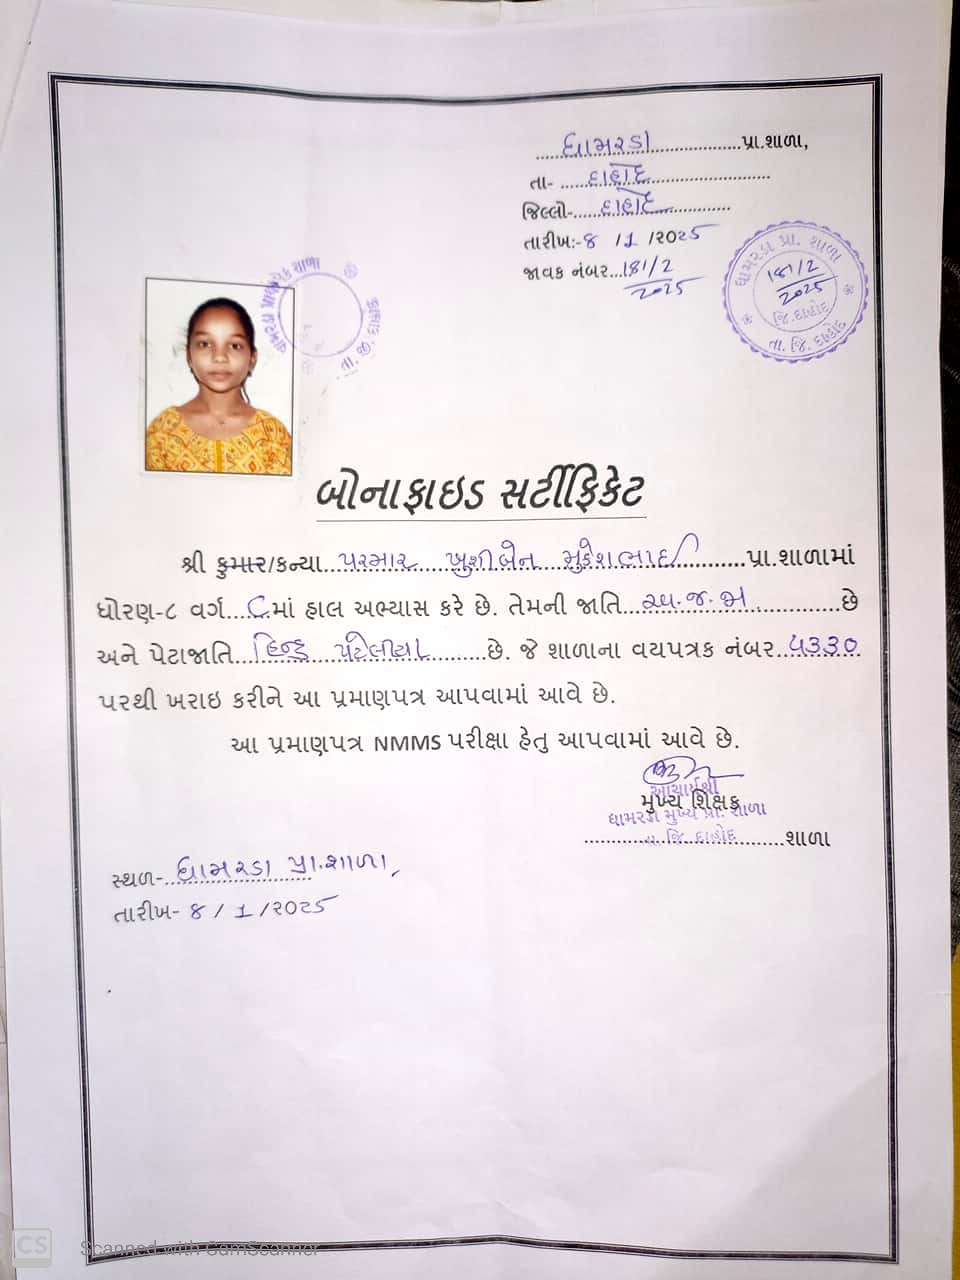 ધામરડા પ્રા.શાળા,
તા- દાહોદ
જિલ્લો- દાહોદ
તારીખ:- ૪ /1 /૨૦૨5
જાવક નંબર...૧૪1/2
2025
ધામરડા પ્રા. શાળા
૧૪1/2
2025
જિ.દાહોદ
તા. જિ. દાહોદ
બોનાફાઇડ સર્ટીફિકેટ
શ્રી કુમાર/કન્યા પરમાર ખુશીબેન મુકેશભાઈ પ્રા.શાળામાં
ધોરણ-૮ વર્ગ C માં હાલ અભ્યાસ કરે છે. તેમની જાતિ અ.જ.જા છે
અને પેટાજાતિ હિન્દુ પટેલીયા છે. જે શાળાના વયપત્રક નંબર ૫૩૩૦
પરથી ખરાઇ કરીને આ પ્રમાણપત્ર આપવામાં આવે છે.
આ પ્રમાણપત્ર NMMS પરીક્ષા હેતુ આપવામાં આવે છે.
આચાર્યશ્રી
મુખ્ય શિક્ષક
ધામરડા મુખ્ય પ્રા. શાળા
તા. જિ. દાહોદ શાળા
સ્થળ- ધામરડા પ્રા.શાળા,
તારીખ- ૪ / 1 /૨૦૨5
CS Scanned with CamScanner